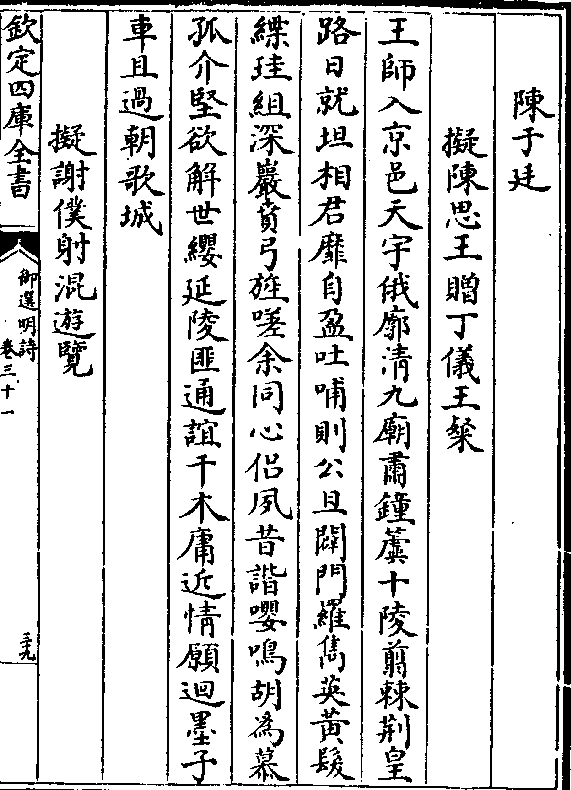 陳于廷
擬陳思王贈丁儀王粲
王師入京邑天宇俄廓清九廟肅鐘簴十陵翦棘荆皇
路日就坦相君靡自盈吐哺則公旦闢門羅雋英黃髮
縲珪組深巖賁弓旌嗟余同心侶夙昔諧嚶鳴胡為慕
孤介堅欲解世纓延陵匪通誼干木庸近情願迴墨子
車且過朝歌城
擬謝僕射混遊覽
欽定四庫全書
御選明詩
卷三十一
三九